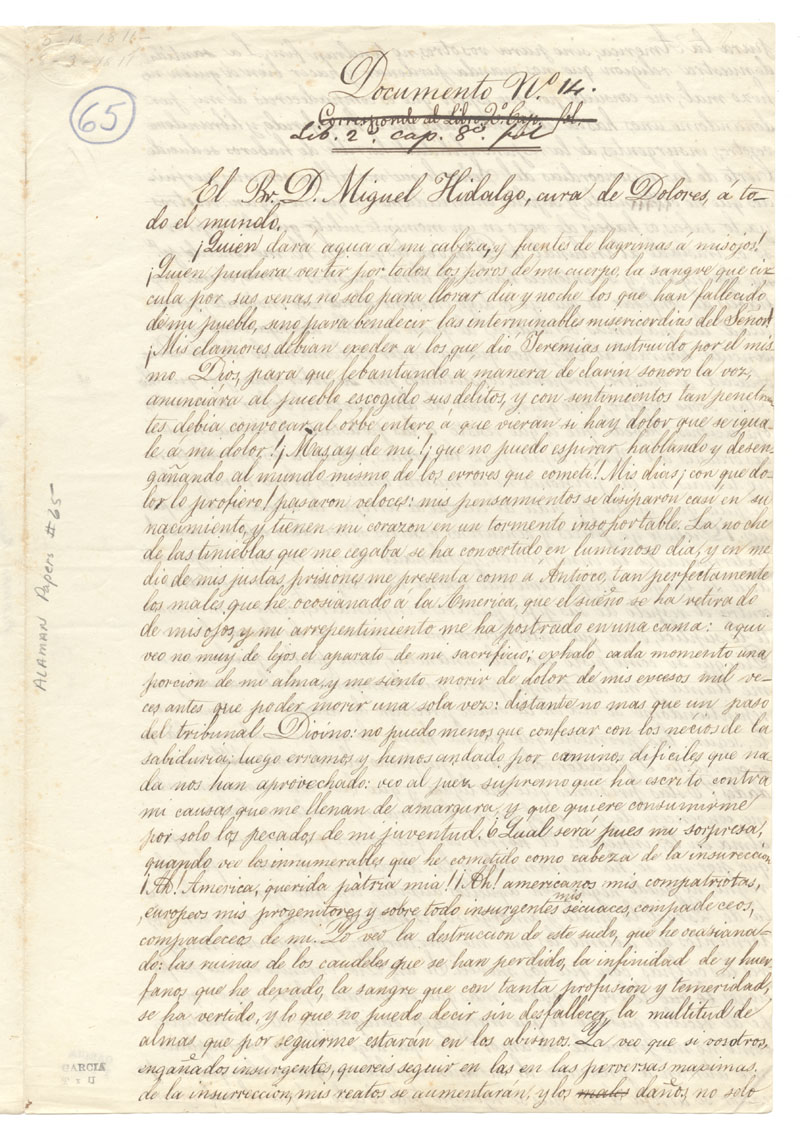 65
Documento N.º 14.
Corresponde al Libro 2º Cap. fol.
Lib. 2º cap. 8º. fol
El Br. D. Miguel Hidalgo, cura de Dolores, á to-
do el mundo.
¡Quien dará agua a mi cabeza, y fuentes de lagrimas á mis ojos!
¡Quien pudiera vertir por todos los poros de mi cuerpo, la sangre que cir
cula por sus venas, no solo para llorar dia y noche los que han fallecido
de mi pueblo, sino para bendecir las interminables misericordias del Señor!
¡Mis clamores debian exeder a los que dió Jeremias instruido por el mis
mo Dios, para que lebantando a manera de clarin sonoro la voz,
anunciára al pueblo escogido sus delitos, y con sentimientos tan penetran
tes debia convocar al orbe entero á que vieran si hay dolor que se igua
le a mi dolor! ¡Mas ay de mi! ¡que no puedo espirar hablando y desen
gañando al mundo mismo de los errores que cometi! Mis dias ¡con que do-
lor lo profiero! pasaron veloces: mis pensamientos se disiparon casi en su
nacimiento, y tienen mi corazon en un tormento insoportable. La noche
de las tinieblas que me cegaba se ha convertido en luminoso dia, y en me
dio de mis justas prisiones me presenta como á Antioco, tan perfectamente
los males que he ocosianado á la America, que el sueño se ha retirado
de mis ojos, y mi arrepentimiento me ha postrado en una cama: aqui
veo no muy de lejos el aparato de mi sacrificio; exhalo cada momento una
porcion de mi alma, y me siento morir de dolor de mis excesos mil ve-
ces antes que poder morir una sola vez: distante no mas que un paso
del tribunal Divino: no puedo menos que confesar con los necios de la
sabiduria; luego erramos y hemos andado por caminos dificiles que na
da nos han aprovechado: veo al juez supremo que ha escrito contra
mi causas que me llenan de amargura, y que quiere consumirme
por solo los pecados de mi juventud. ¿Cual será pues mi sorpresa,
quando veo los innumerables que he cometido como cabeza de la insureccion
¡Ah! America, querida pàtria mia!! ¡Ah! americanos mis compatriotas,
europeos mis progenitores, y sobre todo insurgentes mis secuaces, compadeceos,
compadeceos de mi. Yo veo la destruccion de este suelo, que he ocasiana-
do: las ruinas de los caudeles que se han perdido, la infinidad de y huer
fanos que he dexado, la sangre que con tanta profusion y temeridad,
se ha vertido, y lo que no puedo decir sin desfallecer, la multitud de
almas que por seguirme estarán en los abismos. Ya veo que si vosotros,
engañados insurgentes, quereis seguir en las en las perversas maximas
de la insurreccion, mis reatos se aumentarán, y los males daños, no solo
ALAMAN Papers # 65
GARCIA